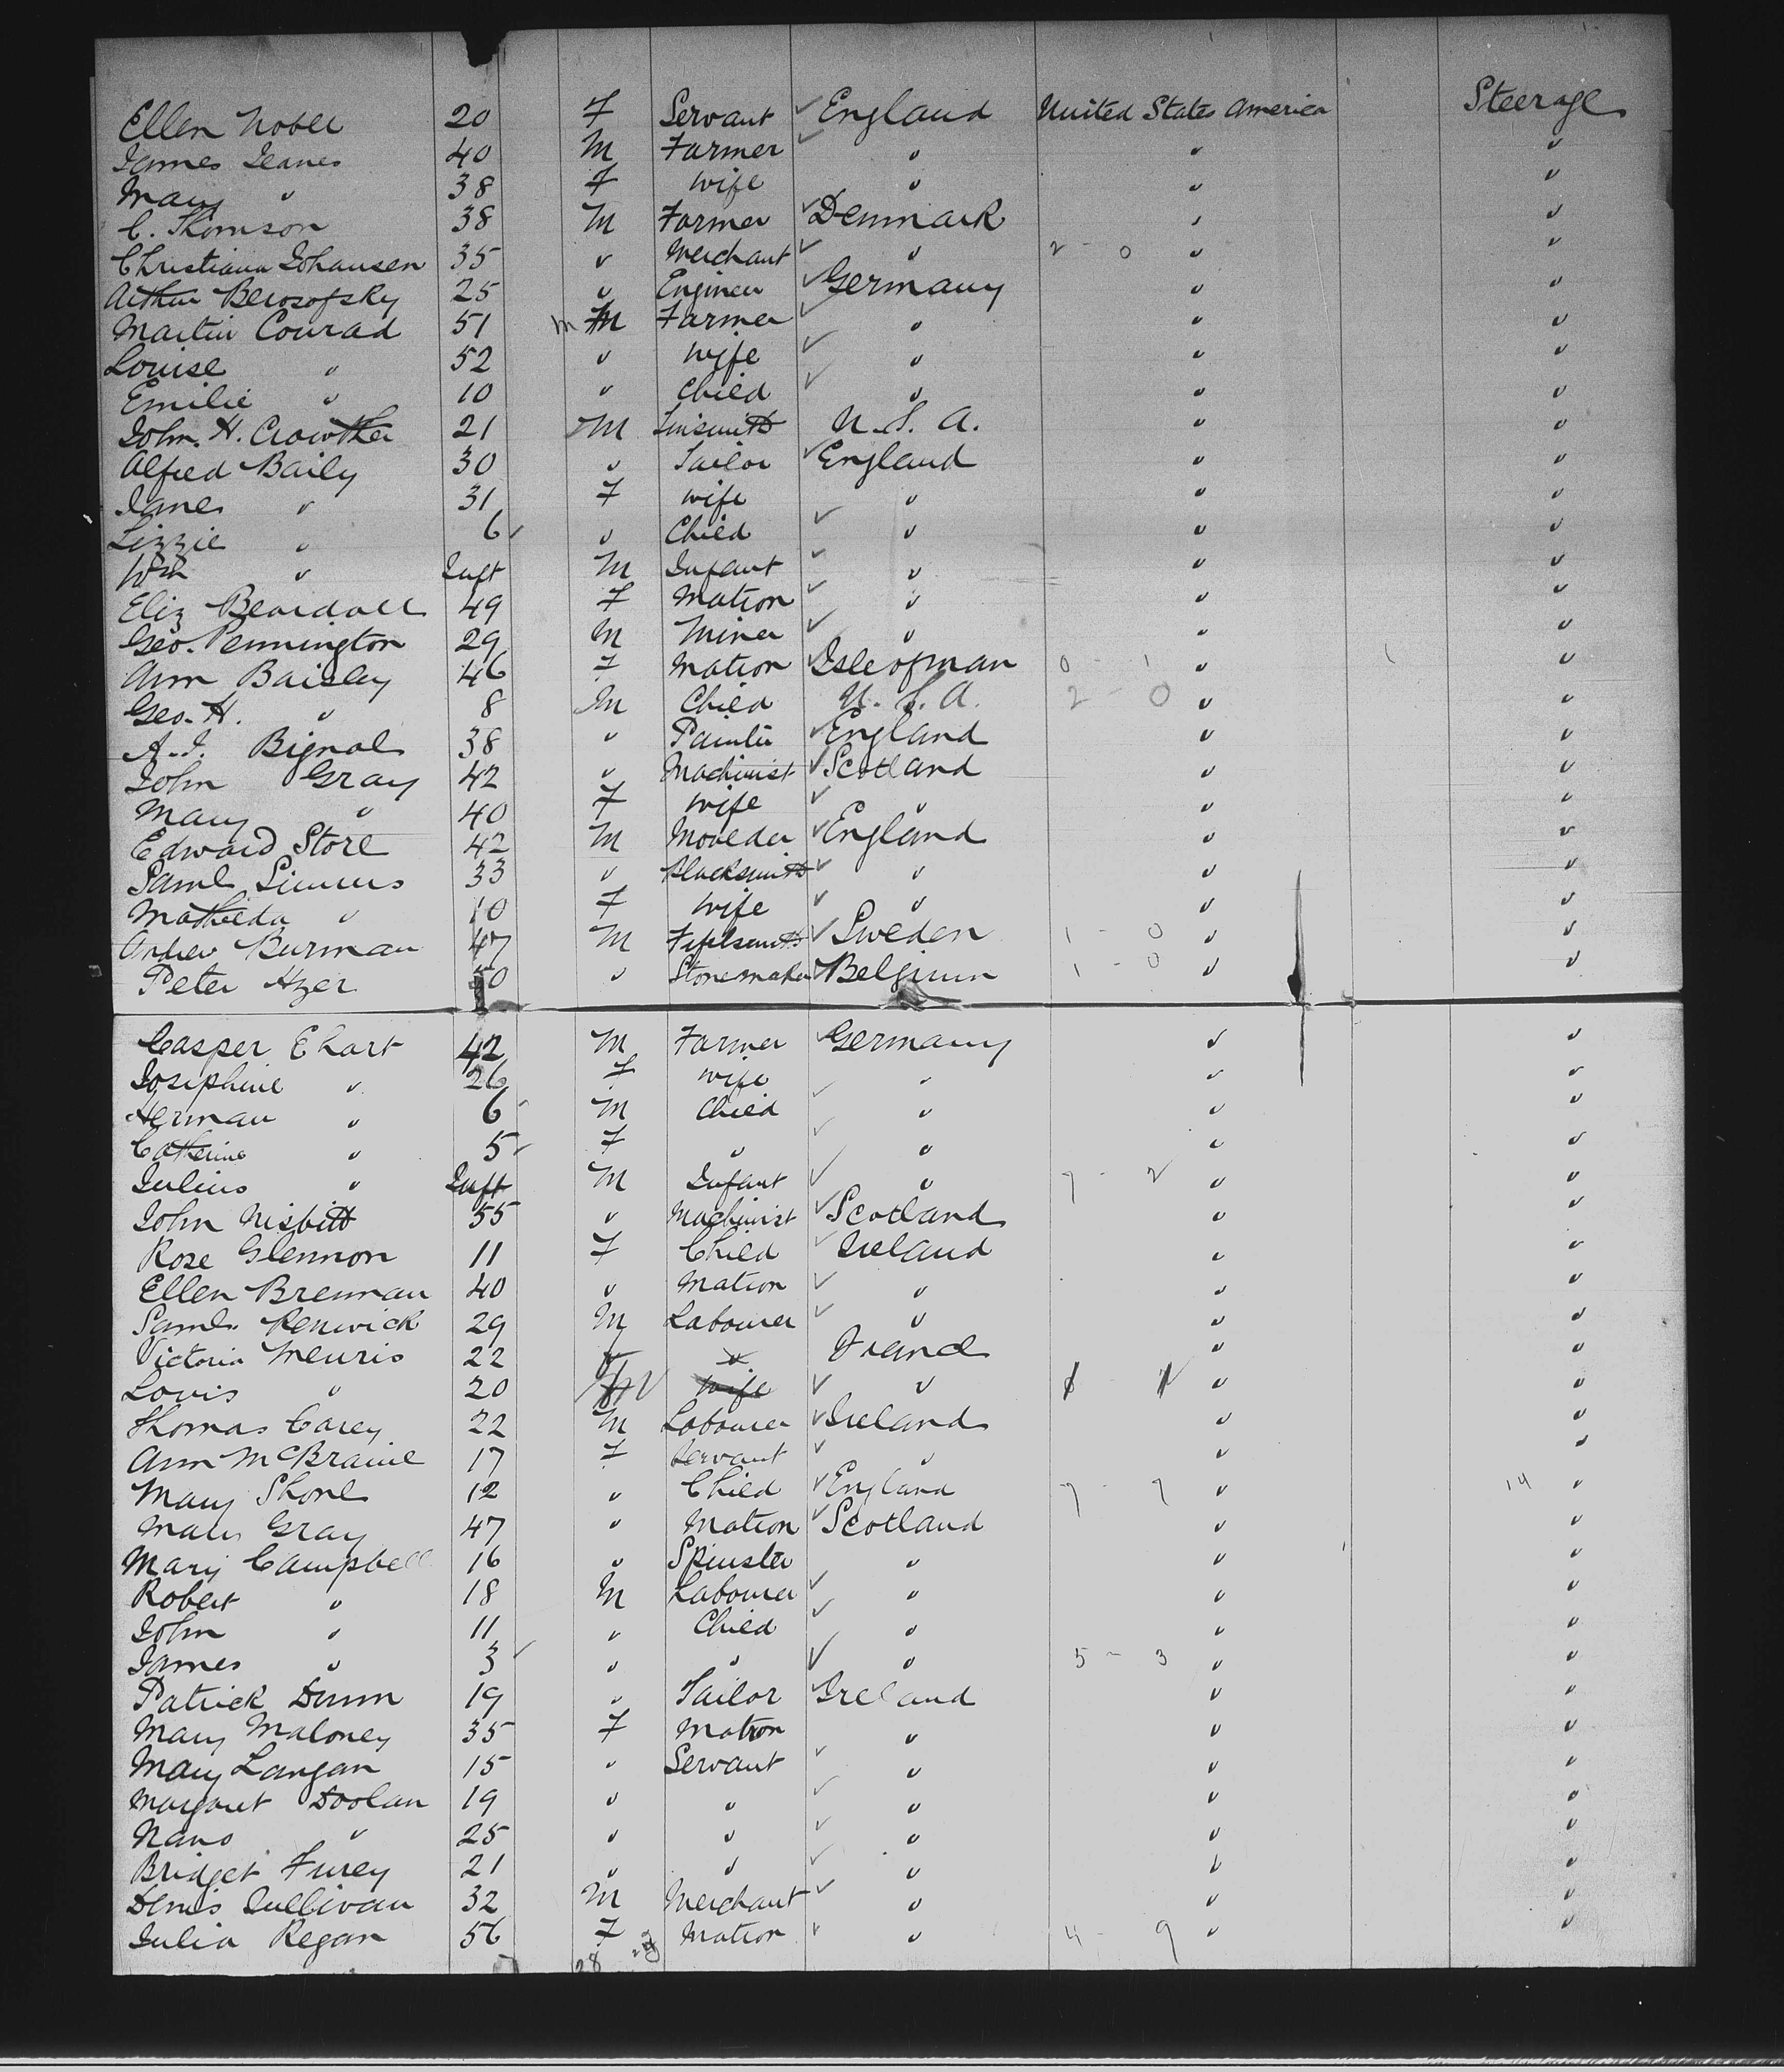 Ellen Nobel 20 F Servant ✓ England United States America Steerage
James Jeanes 40 M Farmer ✓ " " "
Mary " 38 F Wife " " "
C. Thomson 38 M Farmer ✓ Denmark " "
Christiana Johansen 35 " Merchant ✓ " 2 - 0 " "
Arthur Berosofsky 25 " Engineer ✓ Germany " "
Martin Conrad 51 M M Farmer ✓ " " "
Louise " 52 " Wife ✓ " " "
Emilie " 10 " Child ✓ " " "
John. H. Crowther 21 M Tinsmith U. S. A. " "
Alfred Baily 30 " Tailor ✓ England " "
Jane " 31 F Wife " " "
Lizzie " 6 " Child ✓ " " "
Wm " Inft M Infant ✓ " " "
Eliz Beardall 49 F Matron ✓ " " "
Geo. Pennington 29 M Miner ✓ " " "
Ann Baisley 46 F Matron ✓ Isle of man 0 - 1 " "
Geo. H. " 8 M Child U. S. A. 2 - 0 " "
A. J. Bignal 38 " Painter ✓ England " "
John Gray 42 " Machinist ✓ Scotland " "
Mary " 40 F Wife ✓ " " "
Edward Store 42 M Moulder ✓ England " "
Saml Simms 33 " Blacksmith ✓ " " "
Mathilda " 10 F Wife ✓ " " "
Andrew Burman 47 M ✓ Sweden 1 - 0 " "
Peter Hzer 50 " Stonemaker ✓ Belgium 1 - 0 " "
Casper Ehart 42 M Farmer ✓ Germany " "
Josephine " 26 F Wife ✓ " " "
Herman " 6 M Child " " "
Catherine " 5 F " ✓ " " "
Julius " Inft M Infant ✓ " 7 - 2 " "
John Nisbitt 55 " Machinist ✓ Scotland " "
Rose Glennon 11 F Child ✓ Ireland " "
Ellen Brennan 40 " Matron ✓ " " "
Saml. Renwick 29 M Labourer ✓ " " "
Victoria Meuris 22 F " France " "
Louis " 20 M Wife ✓ " 1 - 1 " "
Thomas Carey 22 M Labourer ✓ Ireland " "
Ann McBraine 17 F Servant ✓ " " "
Mary Shore 12 " Child ✓ England 7 - 7 " 14 "
Mary Gray 47 " Matron ✓ Scotland " "
Mary Campbell 16 " Spinster " " "
Robert " 18 M Labourer ✓ " " "
John " 11 " Child ✓ " " "
James " 3 " " ✓ " 5 - 3 " "
Patrick Dunn 19 " Tailor ✓ Ireland " "
Mary Maloney 35 F Matron " " "
Mary Langan 15 " Servant ✓ " " "
Margaret Doolan 19 " " ✓ " " "
Nano " 25 " " ✓ " " "
Bridget Furey 21 " " ✓ " " "
Denis Sullivan 32 M Merchant ✓ " " "
Julia Regan 56 F Matron ✓ " 4 - 9 " "
28